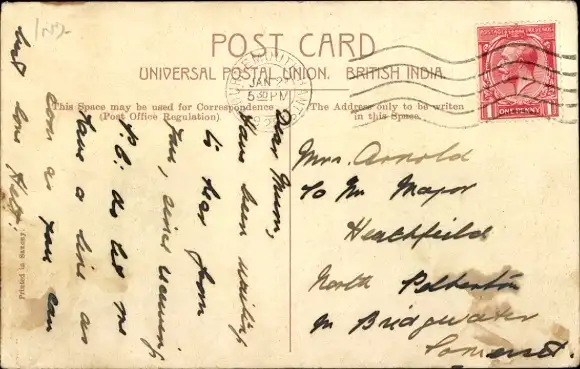 IND-
POST CARD
UNIVERSAL POSTAL UNION. BRITISH INDIA.
This Space may be used for Correspondence
(Post Office Regulation)
The Address only to be writen
in this Space.
JAN 2
5 30 PM
POSTAGE REVENUE
1 ONE PENNY 1
Dear Mum,
Have been waiting
to hear from
you, since receiving
P.C. do let me
have a line as
soon as you can
best love
Mrs. Arnold
To Mr Mayor
Heathfield
North Petherton
Nr Bridgwater
Somerset.
Printed in Saxony.